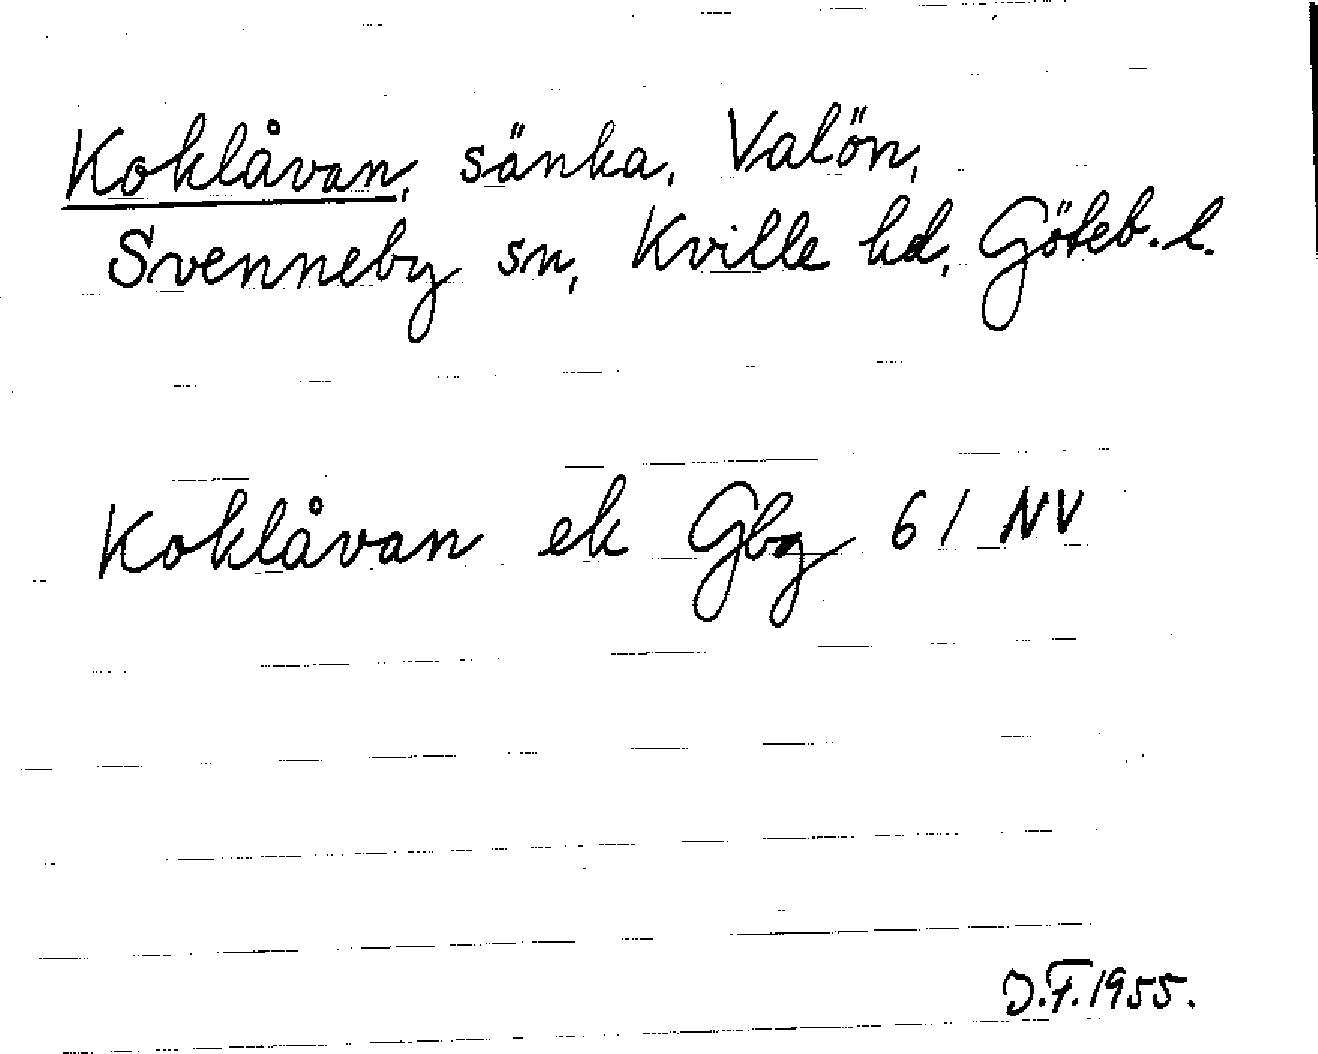 Koklåvan, sänka, Valön,
Svenneby sn, Kville hd, Göteb. l.
Koklåvan ek Gbg 61 NV
J.F. 1955.